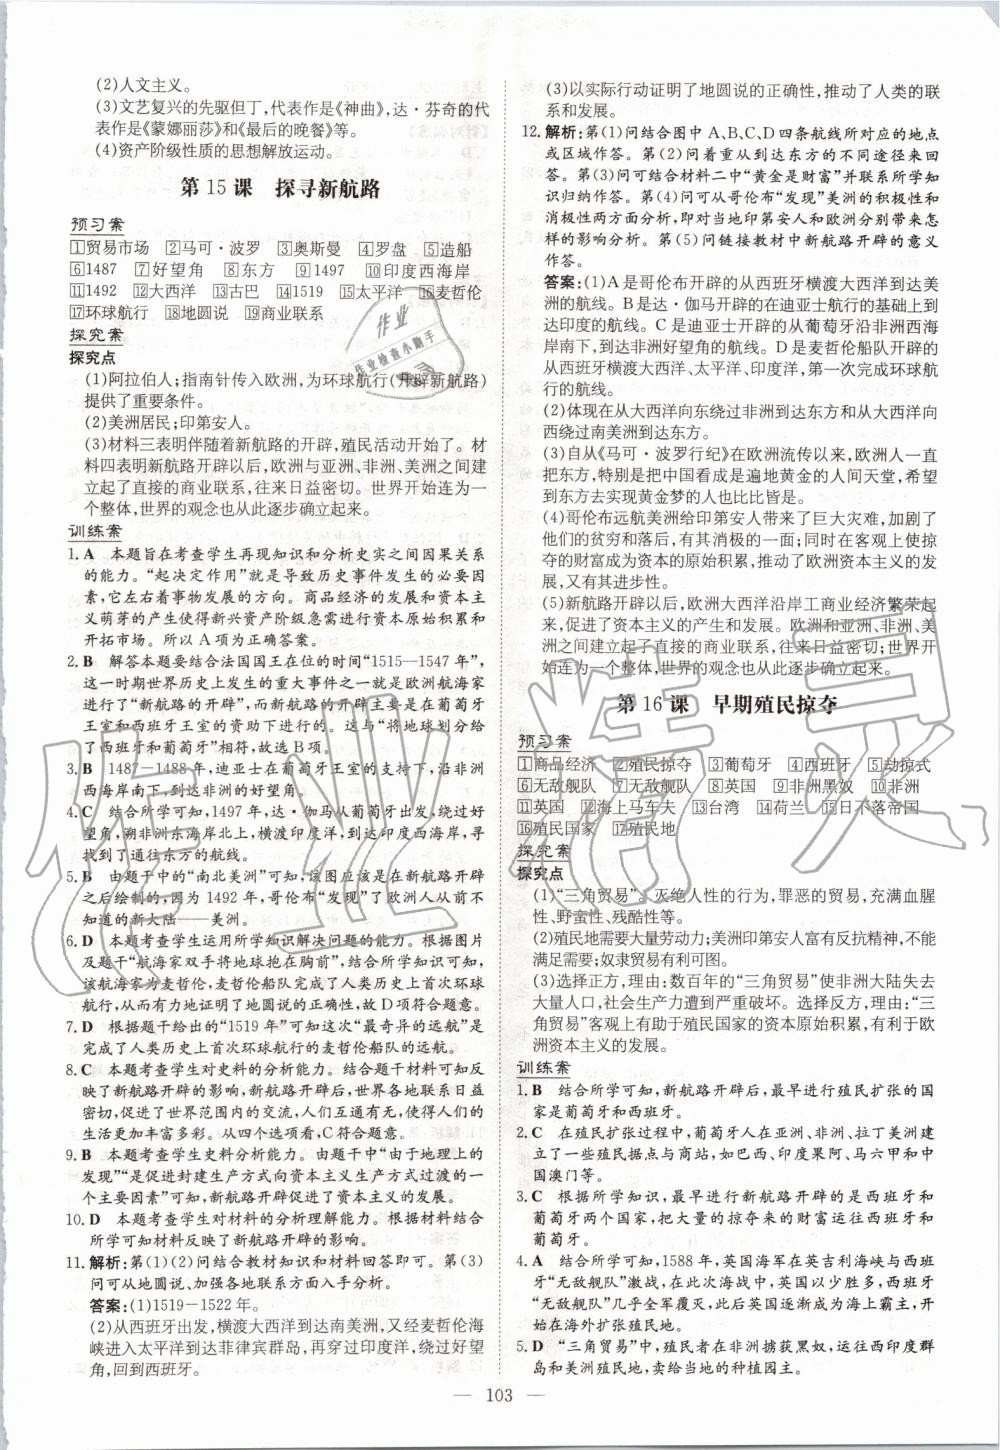 (2)人文主义。
(3)文艺复兴的先驱但丁,代表作是《神曲》,达·芬奇的代
表作是《蒙娜丽莎》和《最后的晚餐》等。
(4)资产阶级性质的思想解放运动。
第 15 课 探寻新航路
预习案
①贸易市场 ②马可·波罗 ③奥斯曼 ④罗盘 ⑤造船
⑥1487 ⑦好望角 ⑧东方 ⑨1497 ⑩印度西海岸
⑪1492 ⑫大西洋 ⑬古巴 ⑭1519 ⑮太平洋 ⑯麦哲伦
⑰环球航行 ⑱地圆说 ⑲商业联系
探究案
探究点
(1)阿拉伯人;指南针传入欧洲,为环球航行(开辟新航路)
提供了重要条件。
(2)美洲居民;印第安人。
(3)材料三表明伴随着新航路的开辟,殖民活动开始了。材
料四表明新航路开辟以后,欧洲与亚洲、非洲、美洲之间建
立起了直接的商业联系,往来日益密切。世界开始连为一
个整体,世界的观念也从此逐步确立起来。
训练案
1. A 本题旨在考查学生再现知识和分析史实之间因果关系
的能力。“起决定作用”就是导致历史事件发生的必要因
素,它左右着事物发展的方向。商品经济的发展和资本主
义萌芽的产生使得新兴资产阶级急需进行资本原始积累和
开拓市场。所以 A 项为正确答案。
2. B 解答本题要结合法国国王在位的时间“1515—1547 年”,
这一时期世界历史上发生的重大事件之一就是欧洲航海家
进行了“新航路的开辟”,新航路的开辟主要是在葡萄牙
王室和西班牙王室的资助下进行的。这与“将地球划分给
了西班牙和葡萄牙”相符,故选 B 项。
3. B 1487—1488 年,迪亚士在葡萄牙王室的支持下,沿非洲
西海岸到达非洲的好望角。
4. C 结合所学可知,1497 年,达·伽马从葡萄牙出发,绕过好
望角,朔非洲东海岸北上,横渡印度洋,到达印度西海岸,寻
找到了通往东方的航线。
5. B 由题干中的“南北美洲”可知,该图应该是在新航路开辟
之后绘制的,因为 1492 年,哥伦布“发现”了欧洲人从前不
知道的新大陆——美洲。
6. D 本题考查学生运用所学知识解决问题的能力。根据图片
及题干“航海家双手将地球抱在胸前”,结合所学可知,
该航海家为麦哲伦,麦哲伦船队完成了人类历史上首次环球
航行,从而有力地证明了地圆说的正确,故 D 项符合题意。
7. D 根据题干给出的“1519 年”可知这次“最奇异的远航”是
完成了人类历史上首次环球航行的麦哲伦船队的航行。
8. C 本题考查学生对史料的分析能力。结合题干材料可知反
映了新航路开辟的影响,新航路开辟后,世界各地联系日益
密切,并促进了世界范围内的交流,人们相互有无,使得人类生
活更加丰富多彩。从四个选项看,C 符合题意。
9. B 本题考查学生史料分析能力。由题干中“由于地理上的
发现”“是促进封建生产方式向资本主义生产方式过渡的一
个主要因素”可知,新航路开辟促进了资本主义的发展。
10. D 本题考查学生对材料的分析理解能力。根据材料结合
所学可知材料反映了新航路开辟的影响。
11. 解析:第(1)(2)问结合教材知识和材料回答即可。第(3)
问可从地圆说、加强各地联系方面入手分析。
答案:(1)1519—1522 年。
(2)从西班牙出发,横渡大西洋到达南美洲,又经麦哲伦海
峡进入太平洋到达菲律宾群岛,再穿过印度洋、绕过好望
角,回到西班牙。
(3)以实际行动证明了地圆说的正确性,推动了人类的联
系和发展。
12. 解析:第(1)问结合图中 A、B、C、D 四条航线所对应的地点
或区域作答。第(2)问着重从达到东方的不同航线进行分
析。第(3)问可结合材料二中“黄金是财富”并联系所学知
识归纳作答。第(4)问可从哥伦布“发现”美洲的积极性和
消极性两方面分析,即对当地印第安人和欧洲分别带来怎
样的影响分析。第(5)问链接教材中新航路开辟的意义
作答。
答案:(1)A 是哥伦布开辟的从西班牙横渡大西洋到达美
洲的航线。B 是达·伽马开辟的在迪亚士航行的基础上到
达印度的航线。C 是迪亚士开辟的从葡萄牙沿非洲西海
岸南下,到达非洲最南端的好望角的航线。D 是麦哲伦船队开辟的
从西班牙横渡大西洋、太平洋、印度洋,第一次完成环球航
行的航线。
(2)体现在从大西洋向东绕过非洲到达东方和从大西洋向
西绕过南美洲到达东方。
(3)自从《马可·波罗行纪》在欧洲流传以来,欧洲人一直
把东方,特别是把中国看成是遍地黄金的人间天堂,希望
到东方去实现黄金梦的人也比比皆是。
(4)哥伦布远航美洲给印第安人带来了巨大灾难,加剧了
他们的贫穷和落后,有其消极的一面;同时在客观上使掠
夺的财富成为资本的原始积累,推动了欧洲资本主义的发
展,又有其进步性。
(5)新航路开辟以后,欧洲大西洋沿岸工商业经济繁荣起
来,促进了资本主义的产生和发展。欧洲和亚洲、非洲、美
洲之间建立起了直接的商业联系,往来日益密切;世界开
始连为一个整体,世界的观念从此逐步确立起来。
第 16 课 早期殖民掠夺
预习案
①商品经济 ②殖民掠夺 ③葡萄牙 ④西班牙 ⑤劫掠式
⑥无敌舰队 ⑦无敌舰队 ⑧英国 ⑨非洲黑奴 ⑩非洲
⑪英国 ⑫海上马车夫 ⑬台湾 ⑭荷兰 ⑮日不落帝国
⑯殖民国家 ⑰殖民地
探究案
探究点
(1)“三角贸易”。灭绝人性的行为,罪恶的贸易,充满血腥
性、野蛮性、残酷性等。
(2)殖民地需要大量劳动力;美洲印第安人富有反抗精神,不能
满足需要;奴隶贸易有利可图。
(3)选择正方,理由:数百年的“三角贸易”使非洲大陆失去
大量人口,社会生产力遭到严重破坏。选择反方,理由:“三
角贸易”客观上有助于殖民国家的资本原始积累,有利于欧
洲资本主义的发展。
训练案
1. B 结合所学可知,新航路开辟后,最早进行殖民扩张的国
家是葡萄牙和西班牙。
2. C 在殖民扩张过程中,葡萄牙在亚洲、非洲、拉丁美洲建立
了一些殖民据点与商站,如巴西、印度果阿、马六甲和中
国澳门等。
3. C 根据所学知识,最早进行新航路开辟的是西班牙和
葡萄牙两个国家,把大量的掠夺来的财富运往西班牙和
葡萄牙。
4. A 结合所学可知,1588 年,英国海军在英吉利海峡与西班
牙“无敌舰队”激战,在此次海战中,英国以少胜多,西班牙
“无敌舰队”几乎全军覆灭,此后英国逐渐成为海上霸主,开
始在海外扩张殖民地。
5. D “三角贸易”中,殖民者在非洲抓捕黑奴,运往西印度群
岛和美洲殖民地,卖给当地的种植园主。
103
作业
作业检查小助手
作业精灵